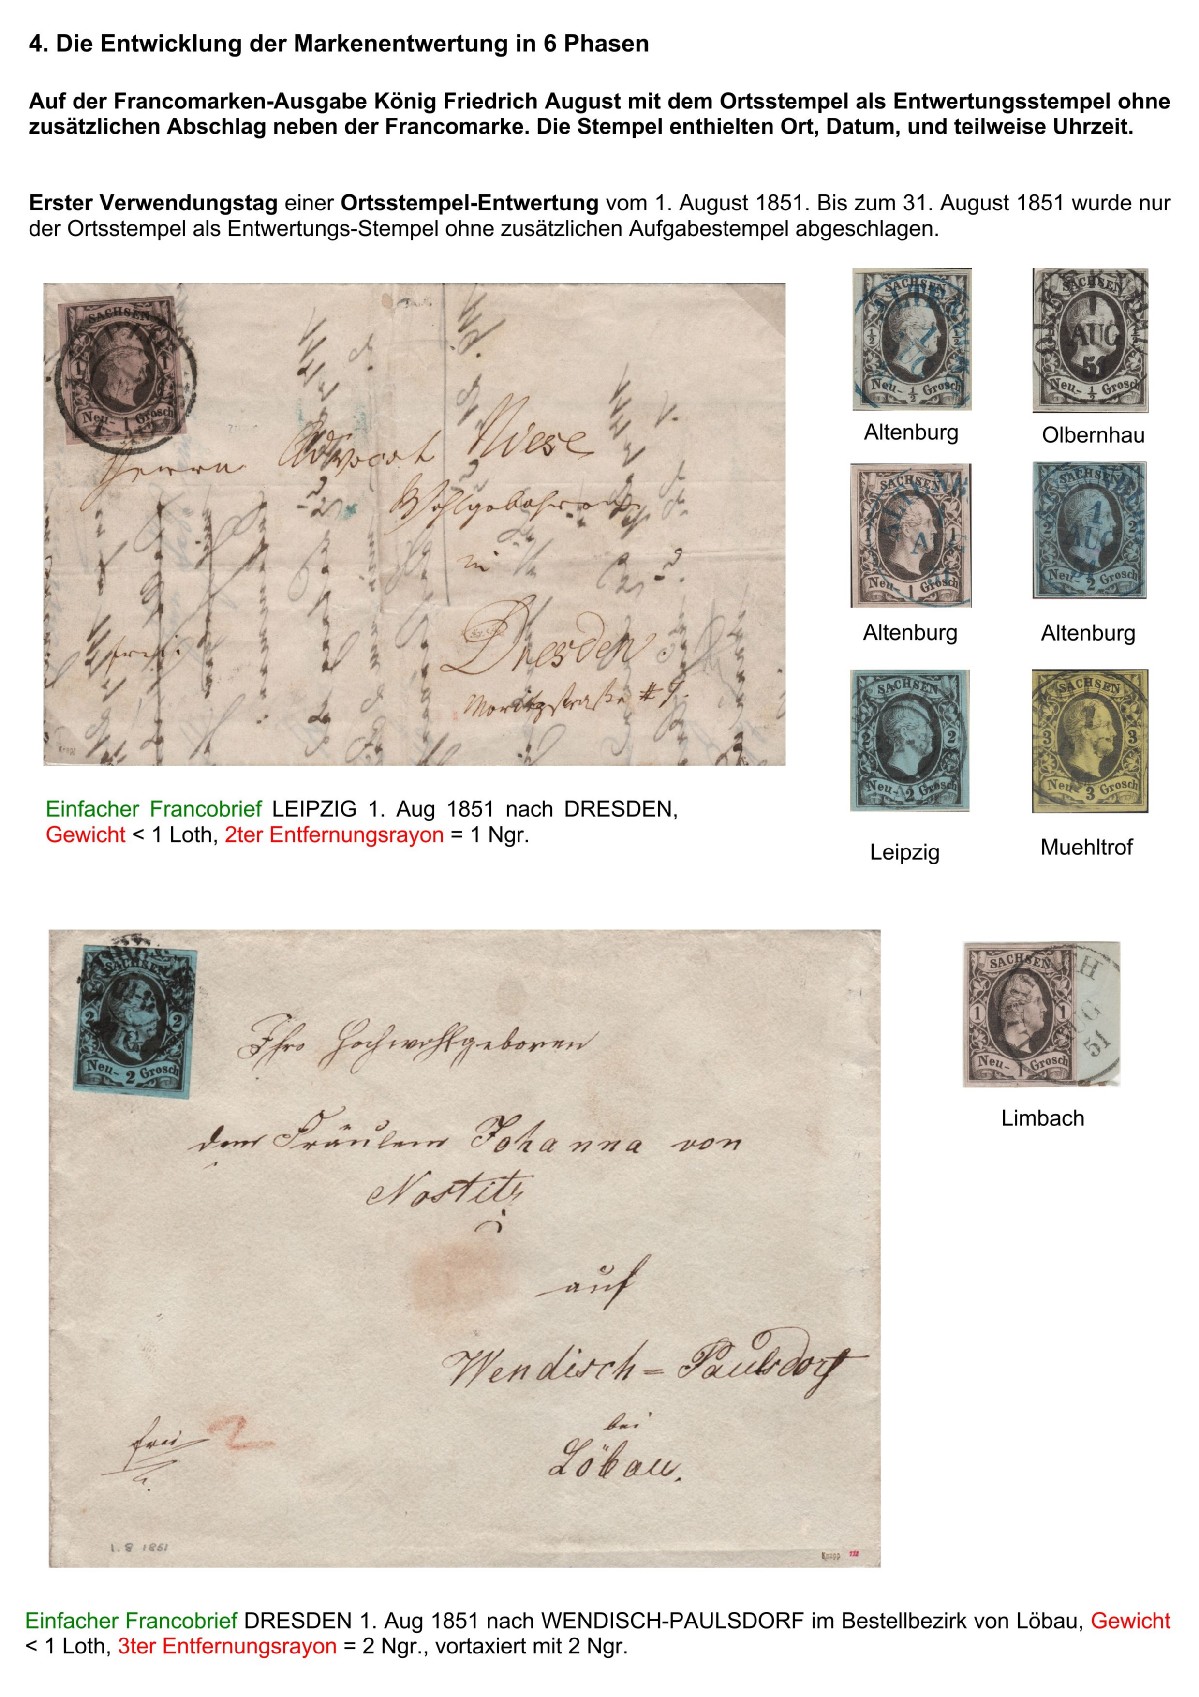 4. Die Entwicklung der Markenentwertung in 6 Phasen
Auf der Francomarken-Ausgabe König Friedrich August mit dem Ortsstempel als Entwertungsstempel ohne
zusätzlichen Abschlag neben der Francomarke. Die Stempel enthielten Ort, Datum, und teilweise Uhrzeit.
Erster Verwendungstag einer Ortsstempel-Entwertung vom 1. August 1851. Bis zum 31. August 1851 wurde nur
der Ortsstempel als Entwertungs-Stempel ohne zusätzlichen Aufgabestempel abgeschlagen.
SACHSEN
1 1
Neu- 1 Grosch
Herrn Advocat Wiese
Wohlgeboren
in
Dresden
Moritzstraße # 9.
frei
SACHSEN
½ ½
Neu- ½ Grosch
Altenburg
SACHSEN
1
AUG
51
Neu- ½ Grosch
Olbernhau
SACHSEN
1 AU 1
Neu- 1 Grosch
Altenburg
SACHSEN
1
2 AUG
Neu- 2 Grosch
Altenburg
SACHSEN
2 2
Neu- 2 Grosch
Leipzig
SACHSEN
3 3
Neu- 3 Grosch
Muehltrof
Einfacher Francobrief LEIPZIG 1. Aug 1851 nach DRESDEN,
Gewicht < 1 Loth, 2ter Entfernungsrayon = 1 Ngr.
SACHSEN
2 2
Neu- 2 Grosch
Ihro Hochwohlgeboren
dem Fräulein Johanna von
Nostitz
auf
Wendisch=Paulsdorf
bei
Löbau.
frei 2
1. 8 1851
SACHSEN H
1 1 UG
51
Neu- 1 Grosch
Limbach
Einfacher Francobrief DRESDEN 1. Aug 1851 nach WENDISCH-PAULSDORF im Bestellbezirk von Löbau, Gewicht
< 1 Loth, 3ter Entfernungsrayon = 2 Ngr., vortaxiert mit 2 Ngr.